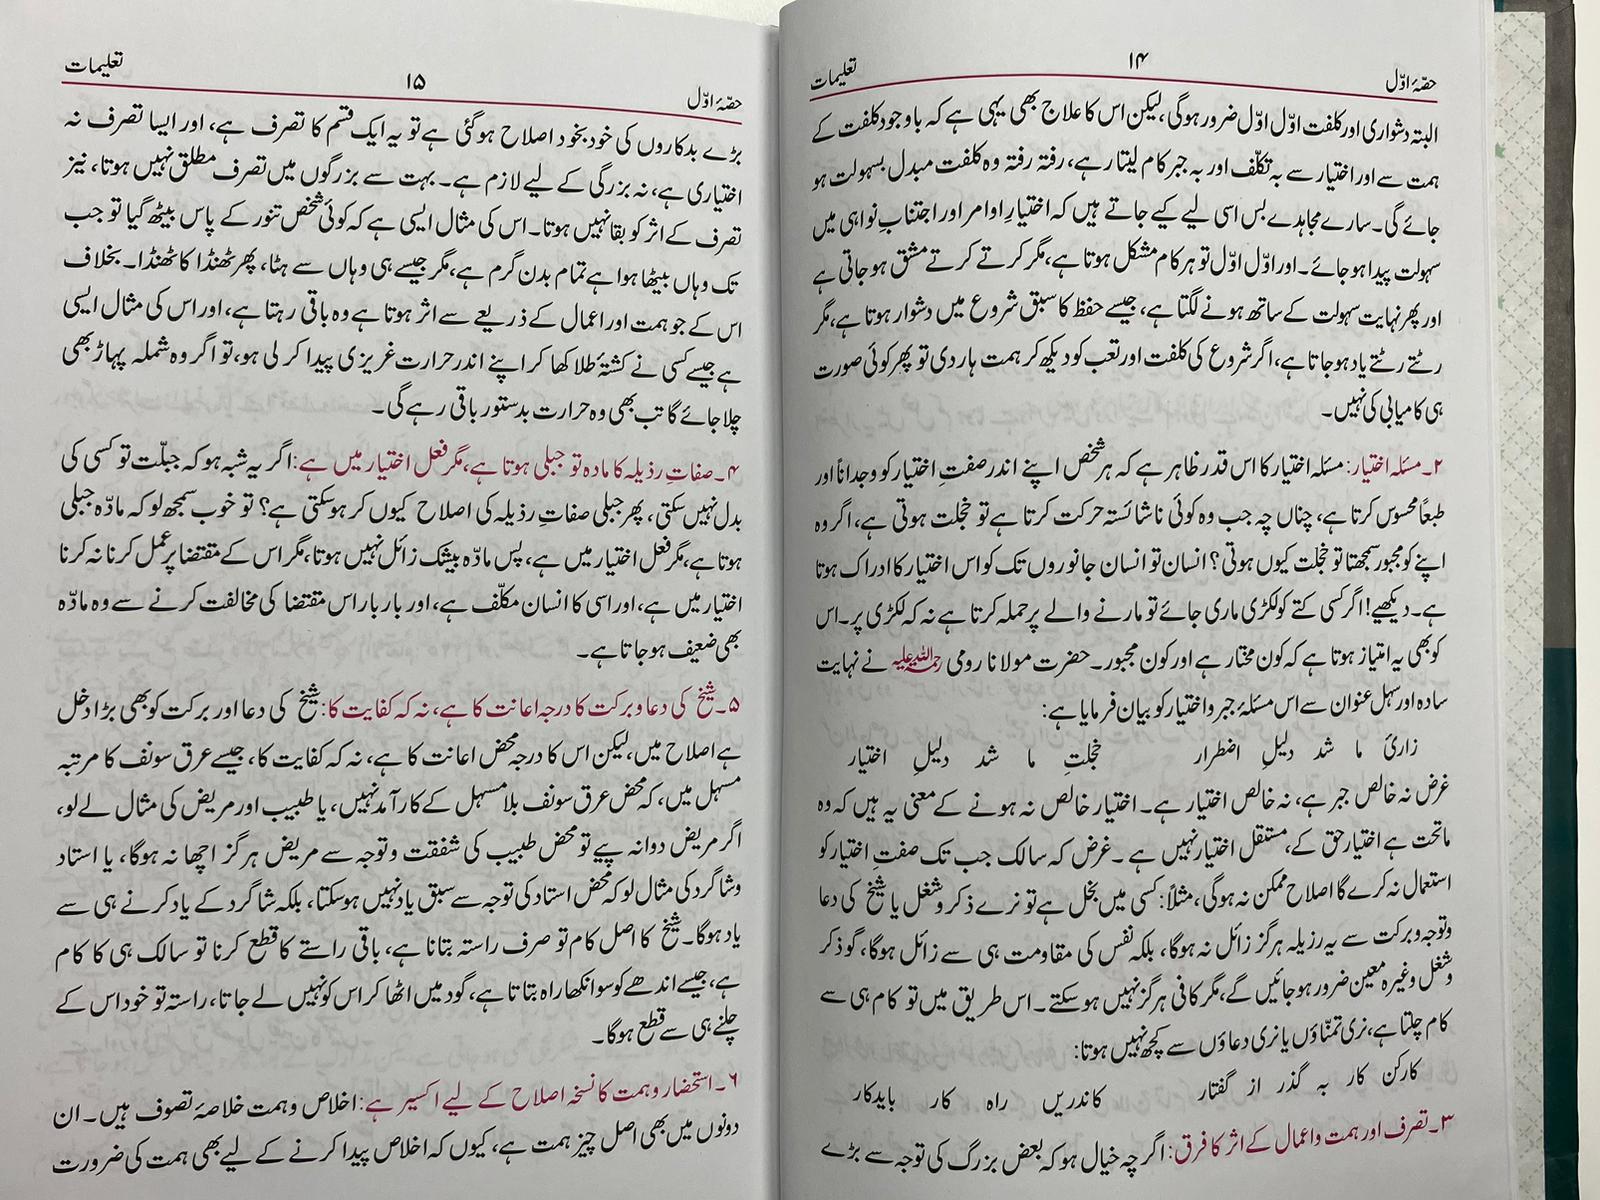 حصّۂ اوّل
۱۴
تعلیمات
البتہ دشواری اور کلفت اوّل اوّل ضرور ہوگی، لیکن اس کا علاج بھی یہی ہے کہ باوجود کلفت کے
ہمت سے اور اختیار سے بہ تکلّف اور بہ جبر کام لیتا رہے، رفتہ رفتہ وہ کلفت مبدل بسہولت ہو
جائے گی۔ سارے مجاہدے بس اسی لیے کیے جاتے ہیں کہ اختیارِ اوامر اور اجتنابِ نواہی میں
سہولت پیدا ہو جائے۔ اور اوّل اوّل تو ہر کام مشکل ہوتا ہے، مگر کرتے کرتے مشق ہو جاتی ہے
اور پھر نہایت سہولت کے ساتھ ہونے لگتا ہے، جیسے حفظ کا سبق شروع میں دشوار ہوتا ہے، مگر
رٹتے رٹتے یاد ہو جاتا ہے، اگر شروع کی کلفت اور تعب کو دیکھ کر ہمت ہار دی تو پھر کوئی صورت
ہی کامیابی کی نہیں۔
۲۔ مسئلہ اختیار: مسئلہ اختیار کا اس قدر ظاہر ہے کہ ہر شخص اپنے اندر صفتِ اختیار کو وجداناً اور
طبعاً محسوس کرتا ہے، چناں چہ جب وہ کوئی ناشائستہ حرکت کرتا ہے تو خجلت ہوتی ہے، اگر وہ
اپنے کو مجبور سمجھتا تو خجلت کیوں ہوتی؟ انسان تو انسان جانوروں تک کو اس اختیار کا ادراک ہوتا
ہے۔ دیکھیے! اگر کسی کتے کو لکڑی ماری جائے تو مارنے والے پر حملہ کرتا ہے نہ کہ لکڑی پر۔ اس
کو بھی یہ امتیاز ہوتا ہے کہ کون مختار ہے اور کون مجبور۔ حضرت مولانا رومی رحمۃ اللہ علیہ نے نہایت
سادہ اور سہل عنوان سے اس مسئلۂ جبر و اختیار کو بیان فرمایا ہے:
زاریٔ ما شد دلیلِ اضطرار خجلتِ ما شد دلیلِ اختیار
غرض نہ خالص جبر ہے، نہ خالص اختیار ہے۔ اختیار خالص نہ ہونے کے معنی یہ ہیں کہ وہ
ماتحت ہے اختیارِ حق کے، مستقل اختیار نہیں ہے۔ غرض کہ سالک جب تک صفتِ اختیار کو
استعمال نہ کرے گا اصلاح ممکن نہ ہوگی، مثلاً: کسی میں بخل ہے تو نرے ذکر و شغل یا شیخ کی دعا
و توجہ و برکت سے یہ رزیلہ ہرگز زائل نہ ہوگا، بلکہ نفس کی مقاومت ہی سے زائل ہوگا، گو ذکر
و شغل وغیرہ معین ضرور ہو جائیں گے، مگر کافی ہرگز نہیں ہو سکتے۔ اس طریق میں تو کام ہی سے
کام چلتا ہے، نری تمنّاؤں یا نری دعاؤں سے کچھ نہیں ہوتا:
کار کن کار بہ گذر از گفتار کاندریں راہ کار باید کار
۳۔ تصرف اور ہمت و اعمال کے اثر کا فرق: اگرچہ خیال ہو کہ بعض بزرگ کی توجہ سے بڑے
حصّۂ اوّل
۱۵
تعلیمات
بڑے بدکاروں کی خود بخود اصلاح ہو گئی ہے تو یہ ایک قسم کا تصرف ہے، اور ایسا تصرف نہ
اختیاری ہے، نہ بزرگی کے لیے لازم ہے۔ بہت سے بزرگوں میں تصرف مطلق نہیں ہوتا، نیز
تصرف کے اثر کو بقا نہیں ہوتا۔ اس کی مثال ایسی ہے کہ کوئی شخص تنور کے پاس بیٹھ گیا تو جب
تک وہاں بیٹھا ہوا ہے تمام بدن گرم ہے، مگر جیسے ہی وہاں سے ہٹا، پھر ٹھنڈا کا ٹھنڈا۔ بخلاف
اس کے جو ہمت اور اعمال کے ذریعے سے اثر ہوتا ہے وہ باقی رہتا ہے، اور اس کی مثال ایسی
ہے جیسے کسی نے کشتۂ طلا کھا کر اپنے اندر حرارت غریزی پیدا کر لی ہو، تو اگر وہ شملہ پہاڑ بھی
چلا جائے گا تب بھی وہ حرارت بدستور باقی رہے گی۔
۴۔ صفاتِ رذیلہ کا مادہ تو جبلی ہوتا ہے، مگر فعل اختیار میں ہے: اگر یہ شبہ ہو کہ جبلّت تو کسی کی
بدل نہیں سکتی، پھر جبلی صفاتِ رذیلہ کی اصلاح کیوں کر ہو سکتی ہے؟ تو خوب سمجھ لو کہ مادّہ جبلی
ہوتا ہے، مگر فعل اختیار میں ہے، پس مادّہ بیشک زائل نہیں ہوتا، مگر اس کے مقتضا پر عمل کرنا نہ کرنا
اختیار میں ہے، اور اسی کا انسان مکلّف ہے، اور بار بار اس مقتضا کی مخالفت کرنے سے وہ مادّہ
بھی ضعیف ہو جاتا ہے۔
۵۔ شیخ کی دعا و برکت کا درجہ اعانت کا ہے، نہ کہ کفایت کا: شیخ کی دعا اور برکت کو بھی بڑا دخل
ہے اصلاح میں، لیکن اس کا درجہ محض اعانت کا ہے، نہ کہ کفایت کا، جیسے عرق سونف کا مرتبہ
مسہل میں، کہ محض عرق سونف بلا مسہل کے کارآمد نہیں، یا طبیب اور مریض کی مثال لے لو،
اگر مریض دوا نہ پیے تو محض طبیب کی شفقت و توجہ سے مریض ہرگز اچھا نہ ہوگا، یا استاد
و شاگرد کی مثال لو کہ محض استاد کی توجہ سے سبق یاد نہیں ہو سکتا، بلکہ شاگرد کے یاد کرنے ہی سے
یاد ہوگا۔ شیخ کا اصل کام تو صرف راستہ بتانا ہے، باقی راستے کا قطع کرنا تو سالک ہی کا کام
ہے، جیسے اندھے کو سوانکھا راہ بتاتا ہے، گود میں اٹھا کر اس کو نہیں لے جاتا، راستہ تو خود اس کے
چلنے ہی سے قطع ہوگا۔
۶۔ استحضار و ہمت کا نسخہ اصلاح کے لیے اکسیر ہے: اخلاص و ہمت خلاصۂ تصوف ہیں۔ ان
دونوں میں بھی اصل چیز ہمت ہے، کیوں کہ اخلاص پیدا کرنے کے لیے بھی ہمت کی ضرورت